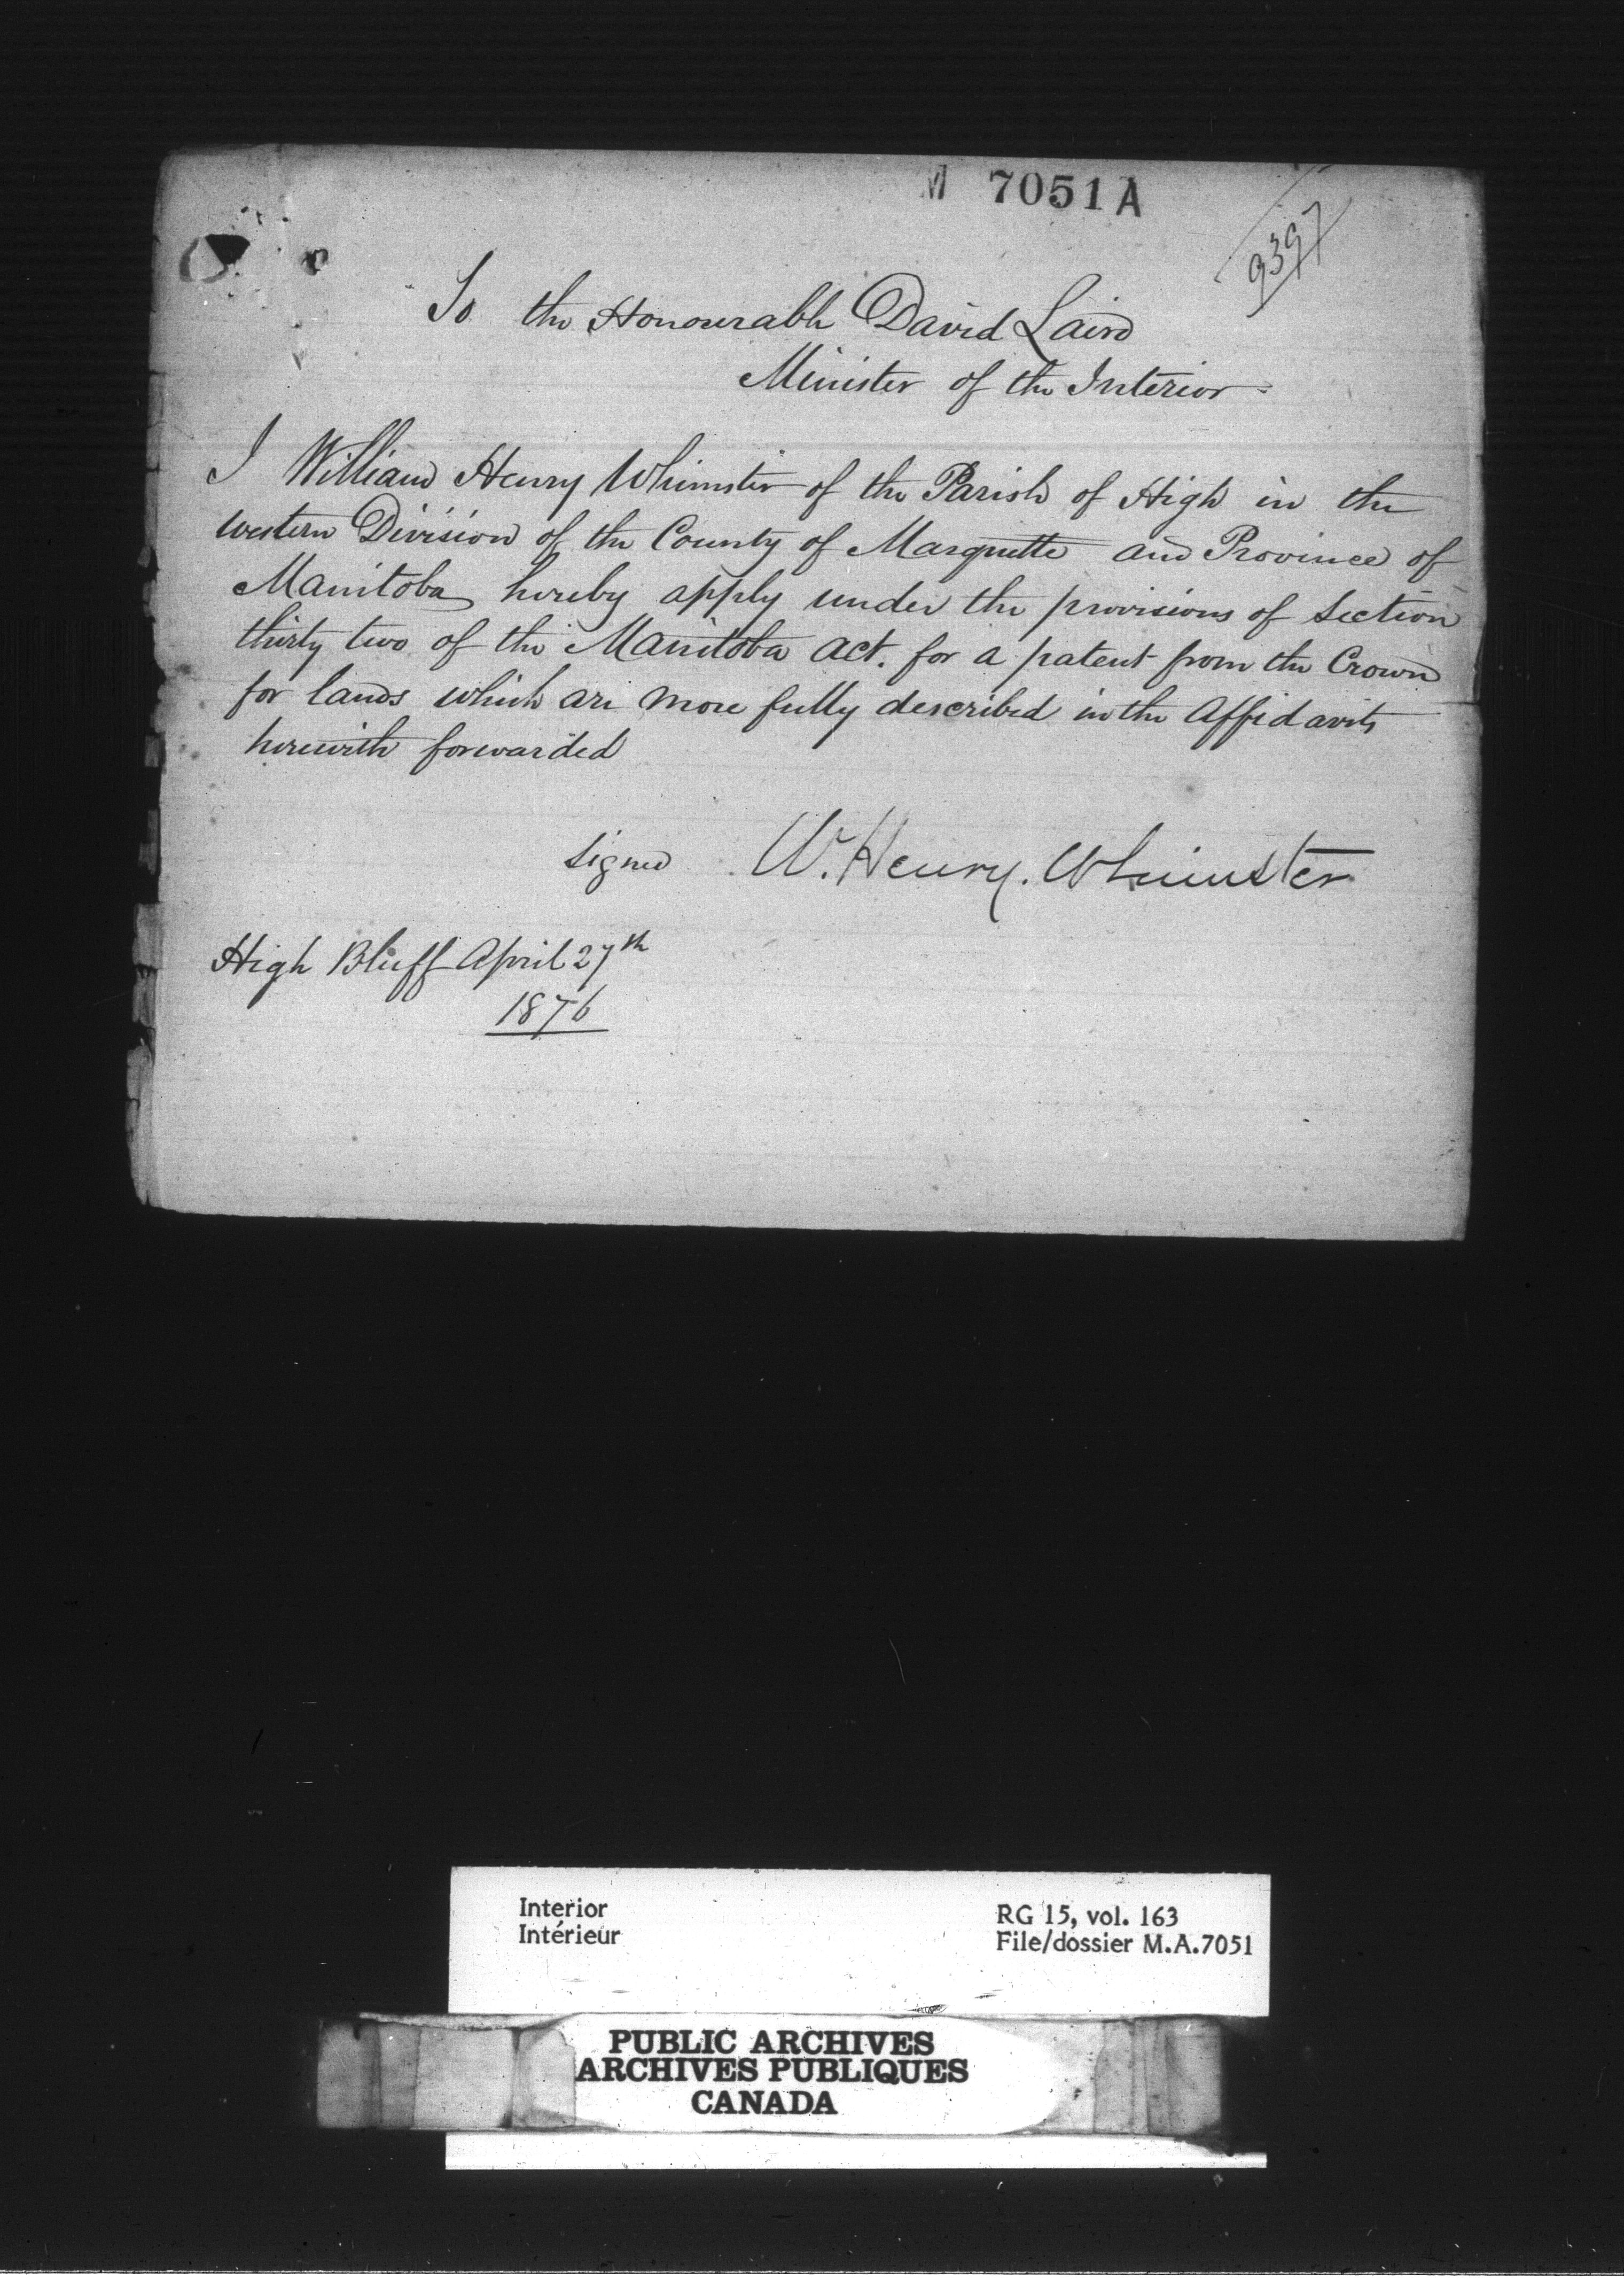 M 7051 A
9397
To the Honourable David Laird
Minister of the Interior
I William Henry Whimster of the Parish of High in the
western Division of the County of Marquette and Province of
Manitoba hereby apply under the provisions of Section
thirty two of the Manitoba Act. for a patent from the Crown
for lands which are more fully described in the Affidavits
herewith forwarded
Signed W. Henry. Whimster
High Bluff April 27th
1876
Interior
Intérieur
RG 15, vol. 163
File/dossier M.A.7051
PUBLIC ARCHIVES
ARCHIVES PUBLIQUES
CANADA